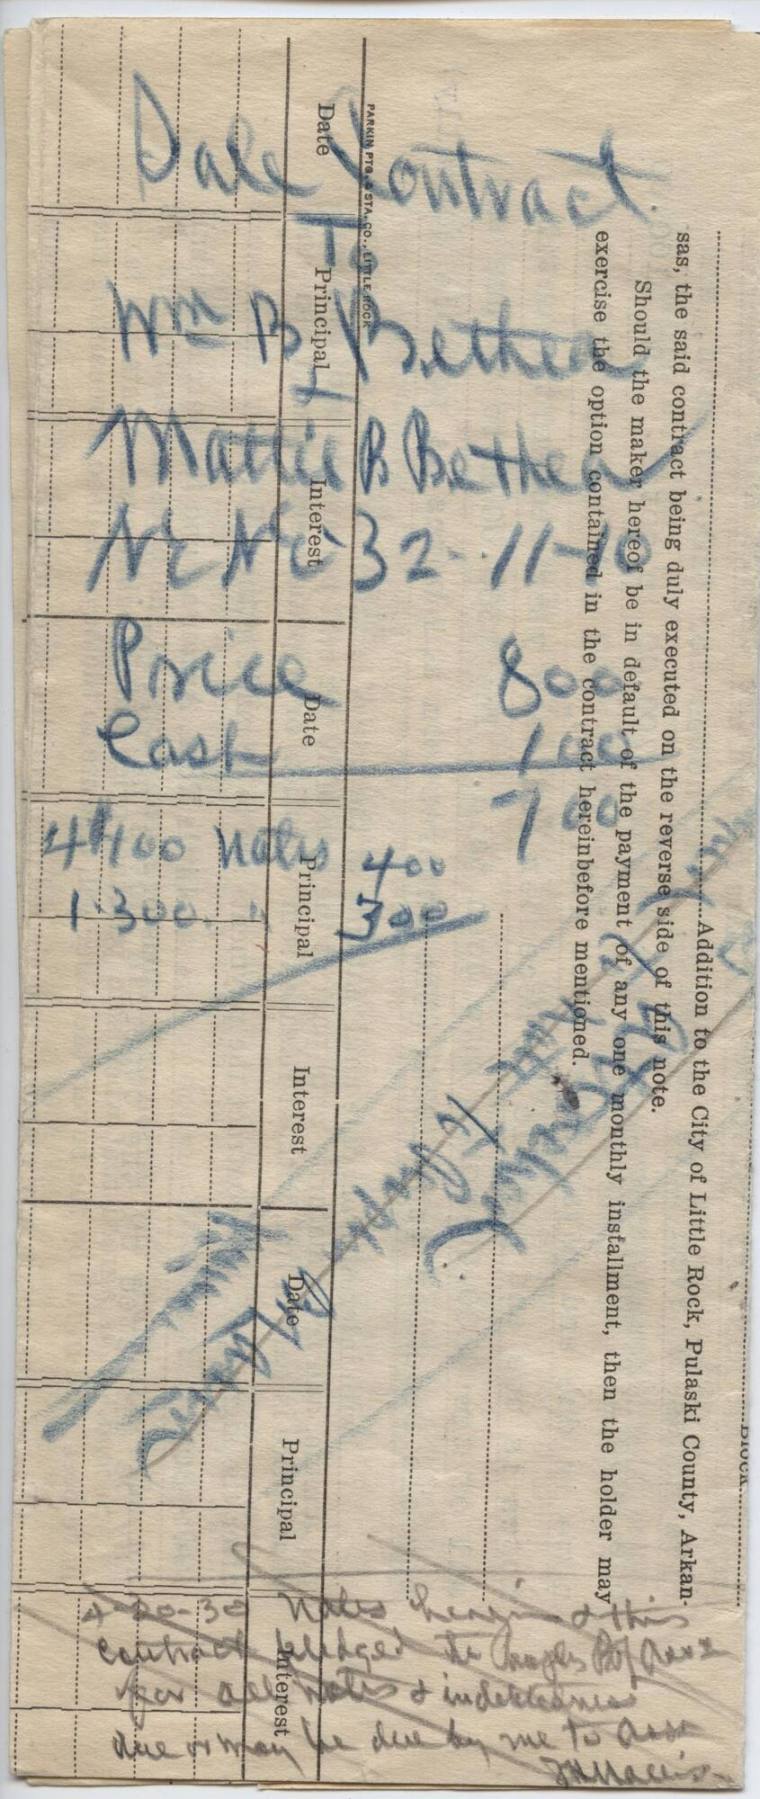 Sale Contract
To
Wm B Bethea
Mattie B Bethea
32-11-10
Price 800
Cash 100
700
4 100 Notes 400
1.300. " 300
4-20-30 Notes herein & this
contract pledged to Peoples
for all notes & indebtedness
due or may be due by me to
Block
Addition to the City of Little Rock, Pulaski County, Arkan-
sas, the said contract being duly executed on the reverse side of this note.
Should the maker hereof be in default of the payment of any one monthly installment, then the holder may
exercise the option contained in the contract hereinbefore mentioned.
PARKIN PTG. & STA. CO., LITTLE ROCK
Date Principal Interest Date Principal Interest Date Principal Interest